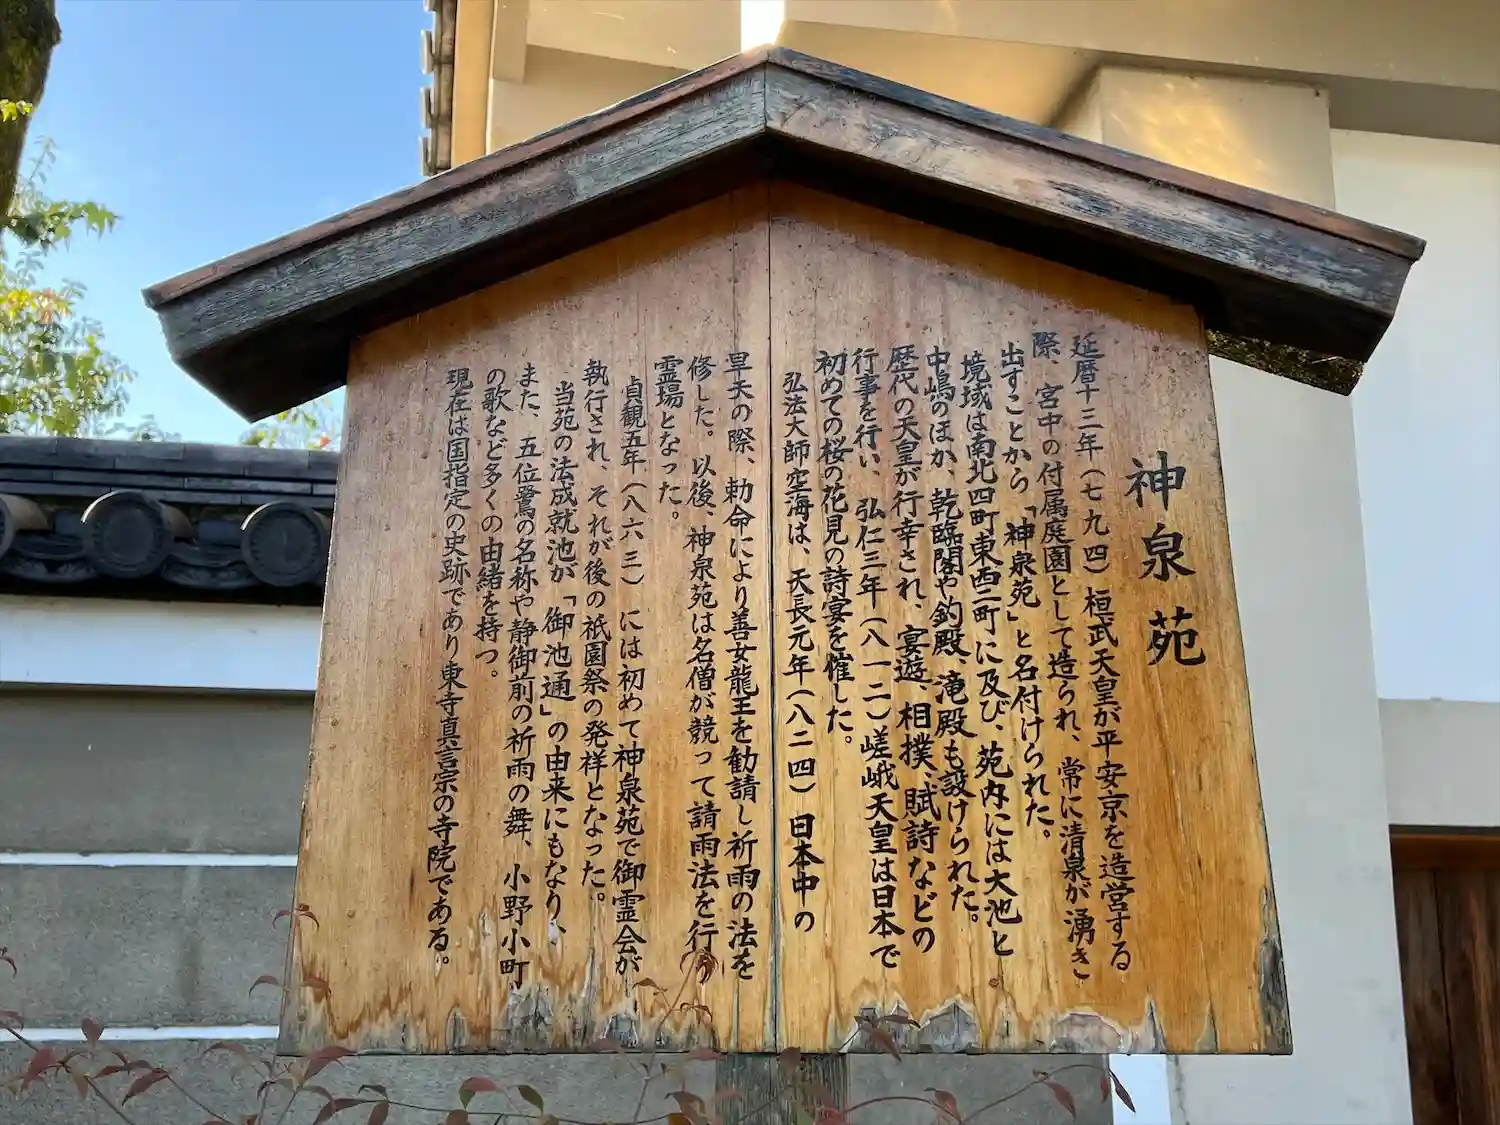 神泉苑
延暦十三年（七九四）桓武天皇が平安京を造営する
際、宮中の付属庭園として造られ、常に清泉が湧き
出すことから「神泉苑」と名付けられた。
境域は南北四町東西二町に及び、苑内には大池と
中嶋のほか、乾臨閣や釣殿、滝殿も設けられた。
歴代の天皇が行幸され、宴遊、相撲、賦詩などの
行事を行い、弘仁三年（八一二）嵯峨天皇は日本で
初めての桜の花見の詩宴を催した。
弘法大師空海は、天長元年（八二四）日本中の
旱天の際、勅命により善女龍王を勧請し祈雨の法を
修した。以後、神泉苑は名僧が競って請雨法を行う
霊場となった。
貞観五年（八六三）には初めて神泉苑で御霊会が
執行され、それが後の祇園祭の発祥となった。
当苑の法成就池が「御池通」の由来にもなり、
また、五位鷺の名称や静御前の祈雨の舞、小野小町
の歌など多くの由緒を持つ。
現在は国指定の史跡であり東寺真言宗の寺院である。